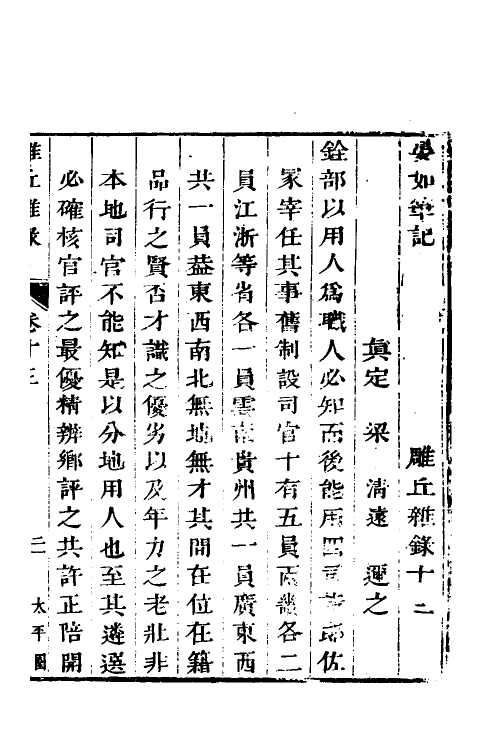 晏如筆記 雕丘雜錄十二
真定 梁 清遠 邇之
銓部以用人爲職人必知而後能用四司諸郎佐
冢宰任其事舊制設司官十有五員兩畿各二
員江浙等省各一員雲南貴州共一員廣東西
共一員葢東西南北無地無才其間在位在籍
品行之賢否才識之優劣以及年力之老壯非
本地司官不能知是以分地用人也至其遴選
必確核官評之最優精辨鄉評之共許正陪開
雕丘雜錄 卷十三 二 太平園